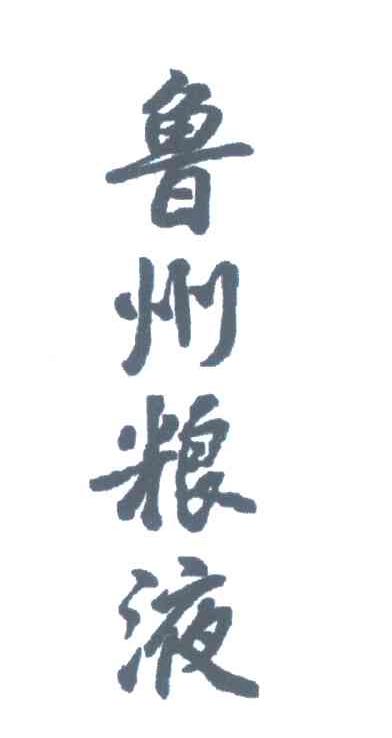 鲁州粮液